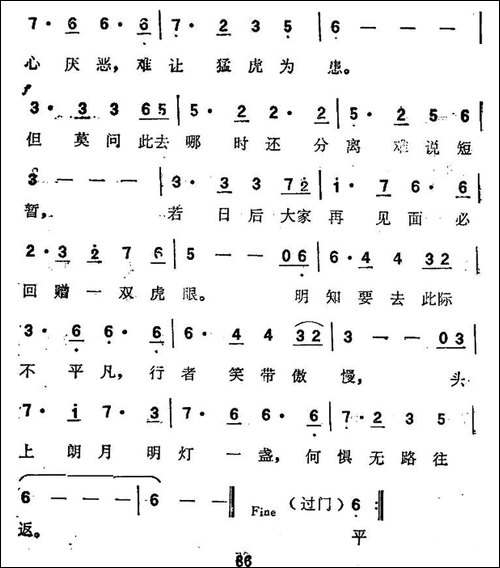 7· 6 6· 6 | 7· 2 3 5 | 6 — — — |
心厌恶，难让猛虎为患。
f
3· 3 3 65 | 5· 2 2· 2 | 5· 2 5 6 |
但莫问此去哪时还分离难说短
3 — — — | 3· 3 3 72 | i· 7 6· 6 |
暂，若日后大家再见面必
2· 3 2 7 6 | 5 — — 06 | 6· 4 4 32 |
回赠一双虎眼。明知要去此际
3· 6 6· 6 | 6· 4 4 32 | 3 — — 03 |
不平凡，行者笑带傲慢，头
7· i 7· 3 | 7· 6 6· 6 | 7· 2 3 5 |
上朗月明灯一盏，何惧无路往
6 — — — | 6 — — ‖ Fine （过门） 6 :‖
返。平
86